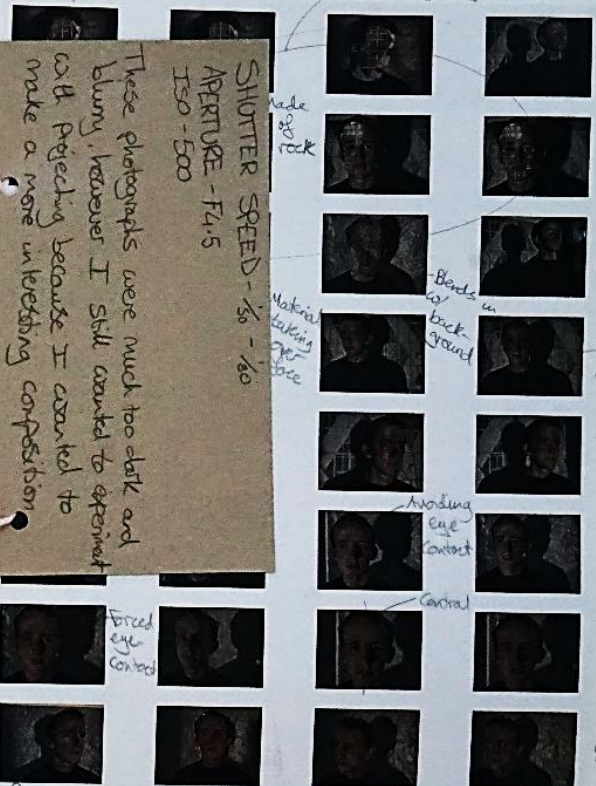 SHUTTER SPEED - 1/30 - 1/80
APERTURE - F4.5
ISO - 500
These photographs were much too dark and
blurry, however I still wanted to experiment
with projecting because I wanted to
make a more interesting composition
Made
of
rock
Blends in
w/
back-
ground
Material
taking
over
face
Avoiding
eye
contact
Central
Forced
eye
contact